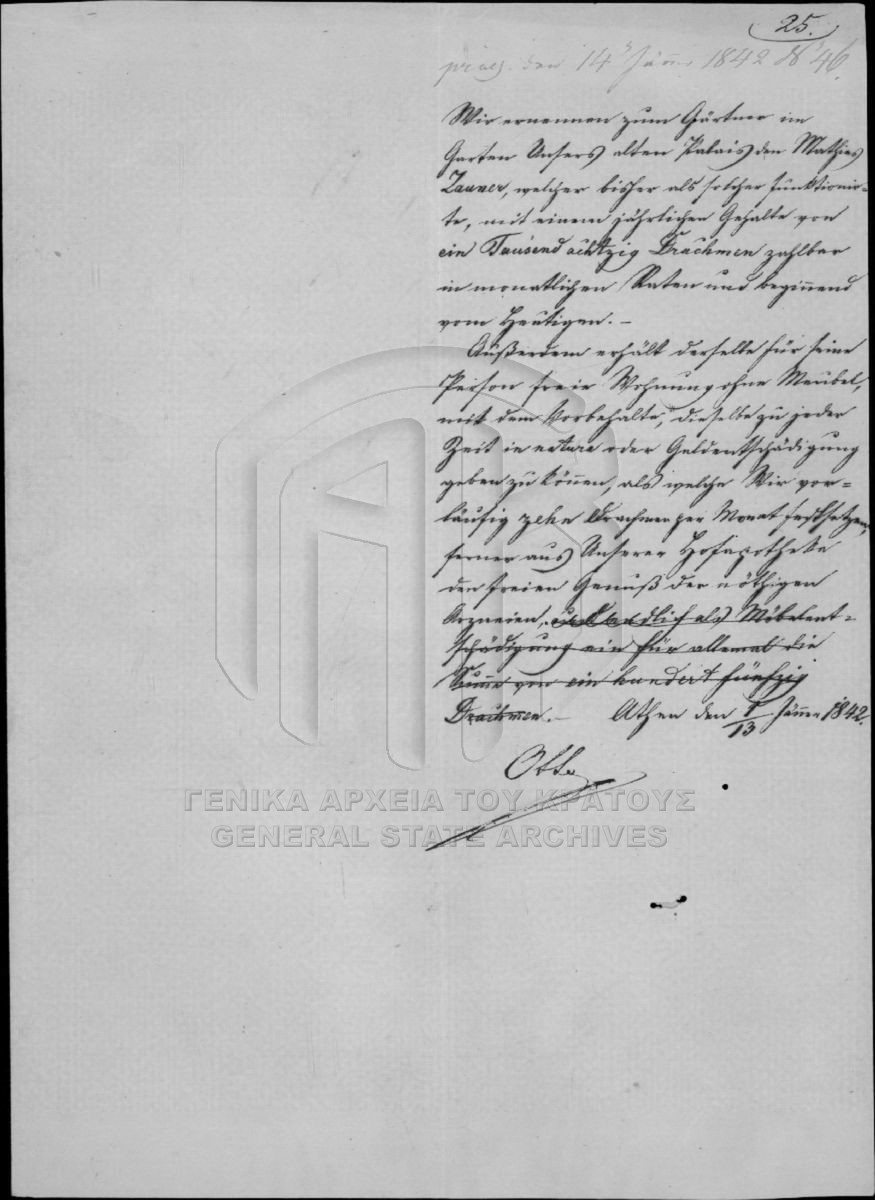 25.
präs. den 14 Jänner 1842 No 46.
Wir ernennen zum Gärtner im
Garten Unsers alten Palais den Mathias
Zauner, welcher bisher als solcher funktionir-
te, mit einem jährlichen Gehalte von
ein Tausend achtzig Drachmen zahlbar
in monatlichen Raten und beginnend
vom Heutigen. –
Außerdem erhält derselbe für seine
Person freie Wohnung ohne Meubel,
mit dem Vorbehalte, dieselbe zu jeder
Zeit in natura oder Geldentschädigung
geben zu können, als welche Wir vor-
läufig zehn Drachmen per Monat festsetzen,
ferner aus Unserer Hofapotheke
den freien Genuß der nöthigen
Arzneien, und endlich als Möbelent-
schädigung ein für allemal die
Summe von ein hundert fünfzig
Drachmen. – Athen den 1/13 Jänner 1842.
Otto
ΓΕΝΙΚΑ ΑΡΧΕΙΑ ΤΟΥ ΚΡΑΤΟΥΣ
GENERAL STATE ARCHIVES